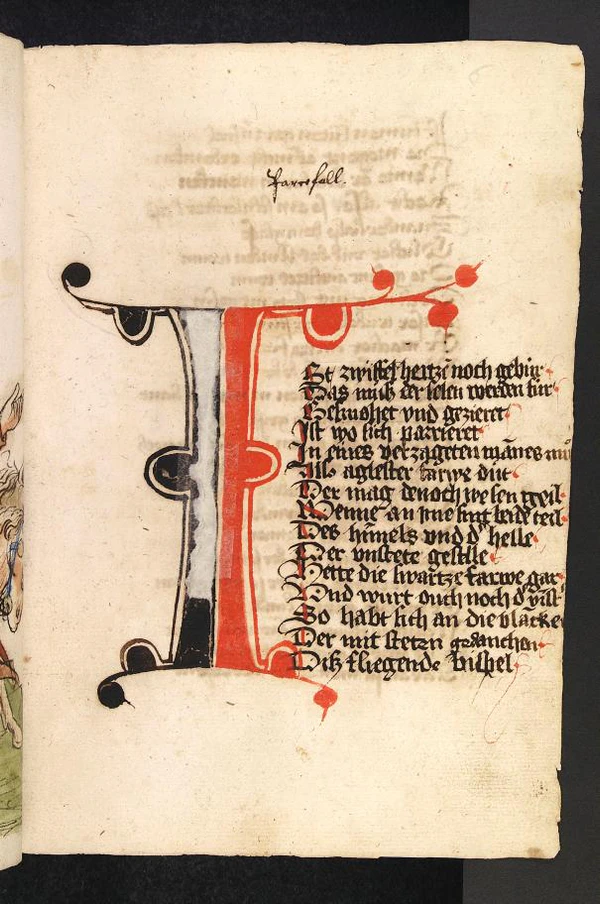 Parcefall.
I
St zwiffel hertzē noch gebur
Das muß der selen werden sur
Gesmohet vnd gezieret
Ist wo sich parrieret
In eines verzageten mānes
Also aglester farwe dut
Der mag denoch wesen geil
Wenne an jme sint beide teil
Des hīmels vnd d' helle
Der vnstete geselle
Hette die swartze farwe gar
Vnd wurt ouch noch d'
So habt sich an die blancke
Der mit stetzn gedancken
Diß fliegende bishel